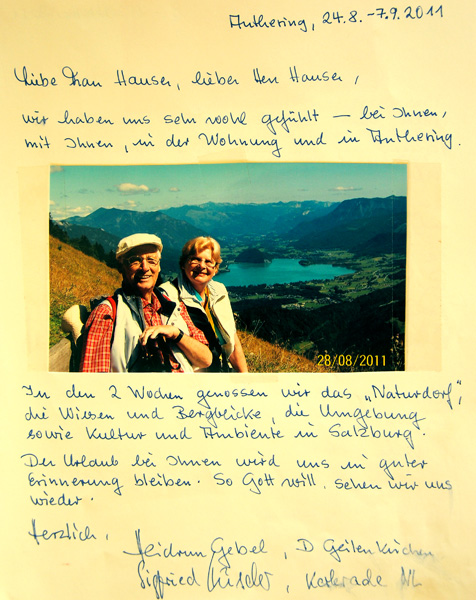 Anthering, 24.8.-7.9.2011
Liebe Frau Hauser, lieber Herr Hauser,
wir haben uns sehr wohl gefühlt – bei Ihnen,
mit Ihnen, in der Wohnung und in Anthering.
28/08/2011
In den 2 Wochen genossen wir das „Naturdorf“,
die Wiesen und Bergblicke, die Umgebung
sowie Kultur und Ambiente in Salzburg.
Der Urlaub bei Ihnen wird uns in guter
Erinnerung bleiben. So Gott will, sehen wir uns
wieder.
Herzlich,
Heidrun Gebel, D Geilenkirchen
Siegfried Kerkrade NL